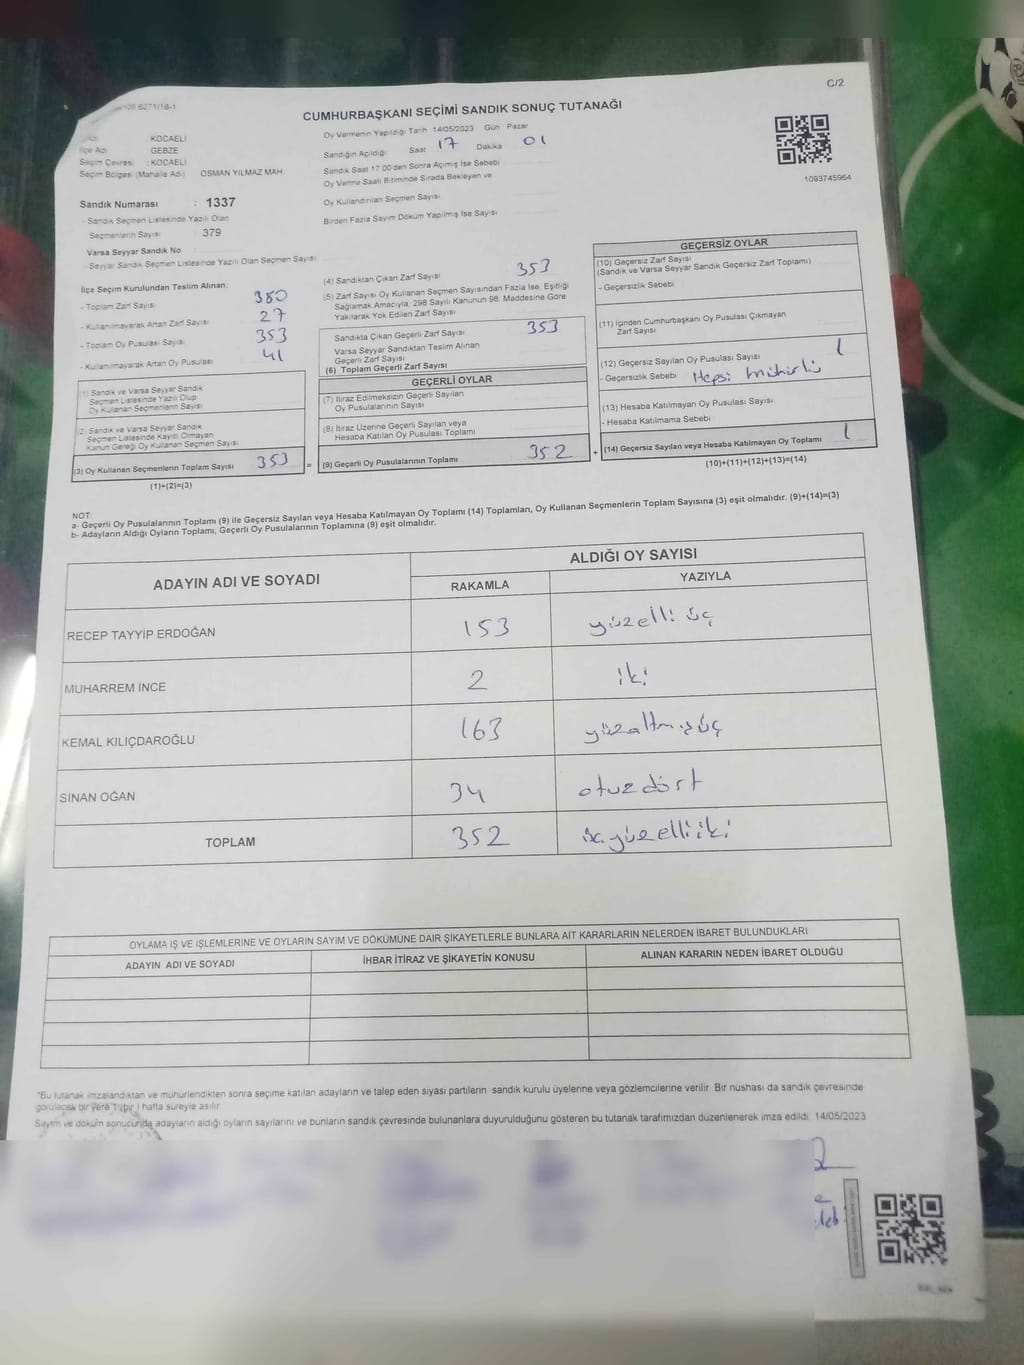 C/2
CUMHURBAŞKANI SEÇİMİ SANDIK SONUÇ TUTANAĞI
KOCAELİ
İlçe Adı GEBZE
Seçim Çevresi : KOCAELİ
Seçim Bölgesi (Mahalle Adı) OSMAN YILMAZ MAH
Oy Vermenin Yapıldığı Tarih 14/05/2023 Gün Pazar
Sandığın Açıldığı Saat 17 Dakika 01
Sandık Saat 17:00'den Sonra Açılmış İse Sebebi
Oy Verme Saati Bitiminde Sırada Bekleyen ve
Oy Kullandırılan Seçmen Sayısı
Birden Fazla Sayım Döküm Yapılmış İse Sayısı
1093745964
Sandık Numarası : 1337
- Sandık Seçmen Listesinde Yazılı Olan
Seçmenlerin Sayısı : 379
Varsa Seyyar Sandık No
- Seyyar Sandık Seçmen Listesinde Yazılı Olan Seçmen Sayısı
İlçe Seçim Kurulundan Teslim Alınan:
- Toplam Zarf Sayısı 380
- Kullanılmayarak Artan Zarf Sayısı 27
- Toplam Oy Pusulası Sayısı 353
- Kullanılmayarak Artan Oy Pusulası 41
(1) Sandık ve Varsa Seyyar Sandık
Seçmen Listesinde Yazılı Olup
Oy Kullanan Seçmenlerin Sayısı
(2) Sandık ve Varsa Seyyar Sandık
Seçmen Listesinde Kayıtlı Olmayan
Kanun Gereği Oy Kullanan Seçmen Sayısı
(3) Oy Kullanan Seçmenlerin Toplam Sayısı 353
(1)+(2)=(3)
(4) Sandıktan Çıkan Zarf Sayısı 353
(5) Zarf Sayısı Oy Kullanan Seçmen Sayısından Fazla İse, Eşitliği
Sağlamak Amacıyla, 298 Sayılı Kanunun 98. Maddesine Göre
Yakılarak Yok Edilen Zarf Sayısı
Sandıkta Çıkan Geçerli Zarf Sayısı 353
Varsa Seyyar Sandıktan Teslim Alınan
Geçerli Zarf Sayısı
(6) Toplam Geçerli Zarf Sayısı
GEÇERLİ OYLAR
(7) İtiraz Edilmeksizin Geçerli Sayılan
Oy Pusulalarının Sayısı
(8) İtiraz Üzerine Geçerli Sayılan veya
Hesaba Katılan Oy Pusulası Toplamı
= (9) Geçerli Oy Pusulalarının Toplamı 352
GEÇERSİZ OYLAR
(10) Geçersiz Zarf Sayısı
(Sandık ve Varsa Seyyar Sandık Geçersiz Zarf Toplamı)
- Geçersizlik Sebebi
(11) İçinden Cumhurbaşkanı Oy Pusulası Çıkmayan
Zarf Sayısı
(12) Geçersiz Sayılan Oy Pusulası Sayısı 1
- Geçersizlik Sebebi Hepsi mühürlü
(13) Hesaba Katılmayan Oy Pusulası Sayısı
- Hesaba Katılmama Sebebi
+ (14) Geçersiz Sayılan veya Hesaba Katılmayan Oy Toplamı 1
(10)+(11)+(12)+(13)=(14)
NOT:
a- Geçerli Oy Pusulalarının Toplamı (9) ile Geçersiz Sayılan veya Hesaba Katılmayan Oy Toplamı (14) Toplamları, Oy Kullanan Seçmenlerin Toplam Sayısına (3) eşit olmalıdır. (9)+(14)=(3)
b- Adayların Aldığı Oyların Toplamı, Geçerli Oy Pusulalarının Toplamına (9) eşit olmalıdır.
ADAYIN ADI VE SOYADI
ALDIĞI OY SAYISI
RAKAMLA YAZIYLA
RECEP TAYYİP ERDOĞAN 153 yüzelli üç
MUHARREM İNCE 2 iki
KEMAL KILIÇDAROĞLU 163 yüzaltmışüç
SİNAN OĞAN 34 otuzdört
TOPLAM 352 üçyüzelliiki
OYLAMA İŞ VE İŞLEMLERİNE VE OYLARIN SAYIM VE DÖKÜMÜNE DAİR ŞİKAYETLERLE BUNLARA AİT KARARLARIN NELERDEN İBARET BULUNDUKLARI
ADAYIN ADI VE SOYADI İHBAR İTİRAZ VE ŞİKAYETİN KONUSU ALINAN KARARIN NEDEN İBARET OLDUĞU
"Bu tutanak imzalandıktan ve mühürlendikten sonra seçime katılan adayların ve talep eden siyasi partilerin sandık kurulu üyelerine veya gözlemcilerine verilir. Bir nüshası da sandık çevresinde
görülecek bir yere 1 (bir) hafta süreyle asılır.
Sayım ve döküm sonucunda adayların aldığı oyların sayılarını ve bunların sandık çevresinde bulunanlara duyurulduğunu gösteren bu tutanak tarafımızdan düzenlenerek imza edildi. 14/05/2023